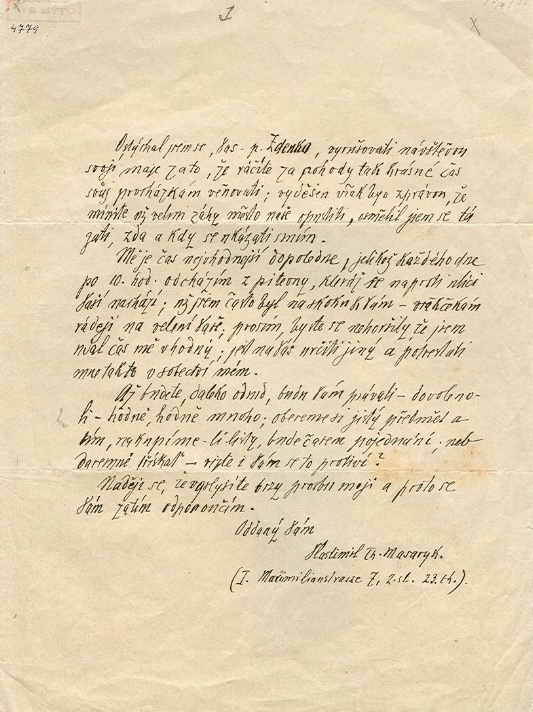 4779
Ostýchal jsem se, slč. p. Zdenko, vyrušovati návštěvou
svojí maje za to, že ráčíte za pohody tak krásné čas
svůj procházkám věnovati; vyděšen však byv zprávou, že
míníte už velmi záhy město naše opustiti, osmělil jsem se tá
zati, zda a kdy se ukázati smím.
Mě je čas nejvhodnější dopoledne, jelikož každého dne
po 10. hod. odcházím z pitevny, kteráž se naproti ulici
Vaší nachází; už jsem často byl na skoku k Vám – však čekám
raději na velení Vaše. prosím, byste se nehoršily že jsem
udal čas mě vhodný; jest na Vás určiti jiný a potrestati
mne takto v sobectví mém.
Až budete, daleko odtud, budu Vám psávati – dovolno-
li – hodně, hodně mnoho; obereme si jistý předmět a
tím, nezkupíme-li listy, bude časem pojednání; neb
daremně "tlískat" – nejste i Vám se to protiví?
Naděje se, že vyslyšíte brzy prosbu moji a proto se
Vám zatím odporoučím.
Oddaný Vám
Vlastimil Th. Masaryk.
(I. Maximilianstrasse 7, 2. st. 23. th.).